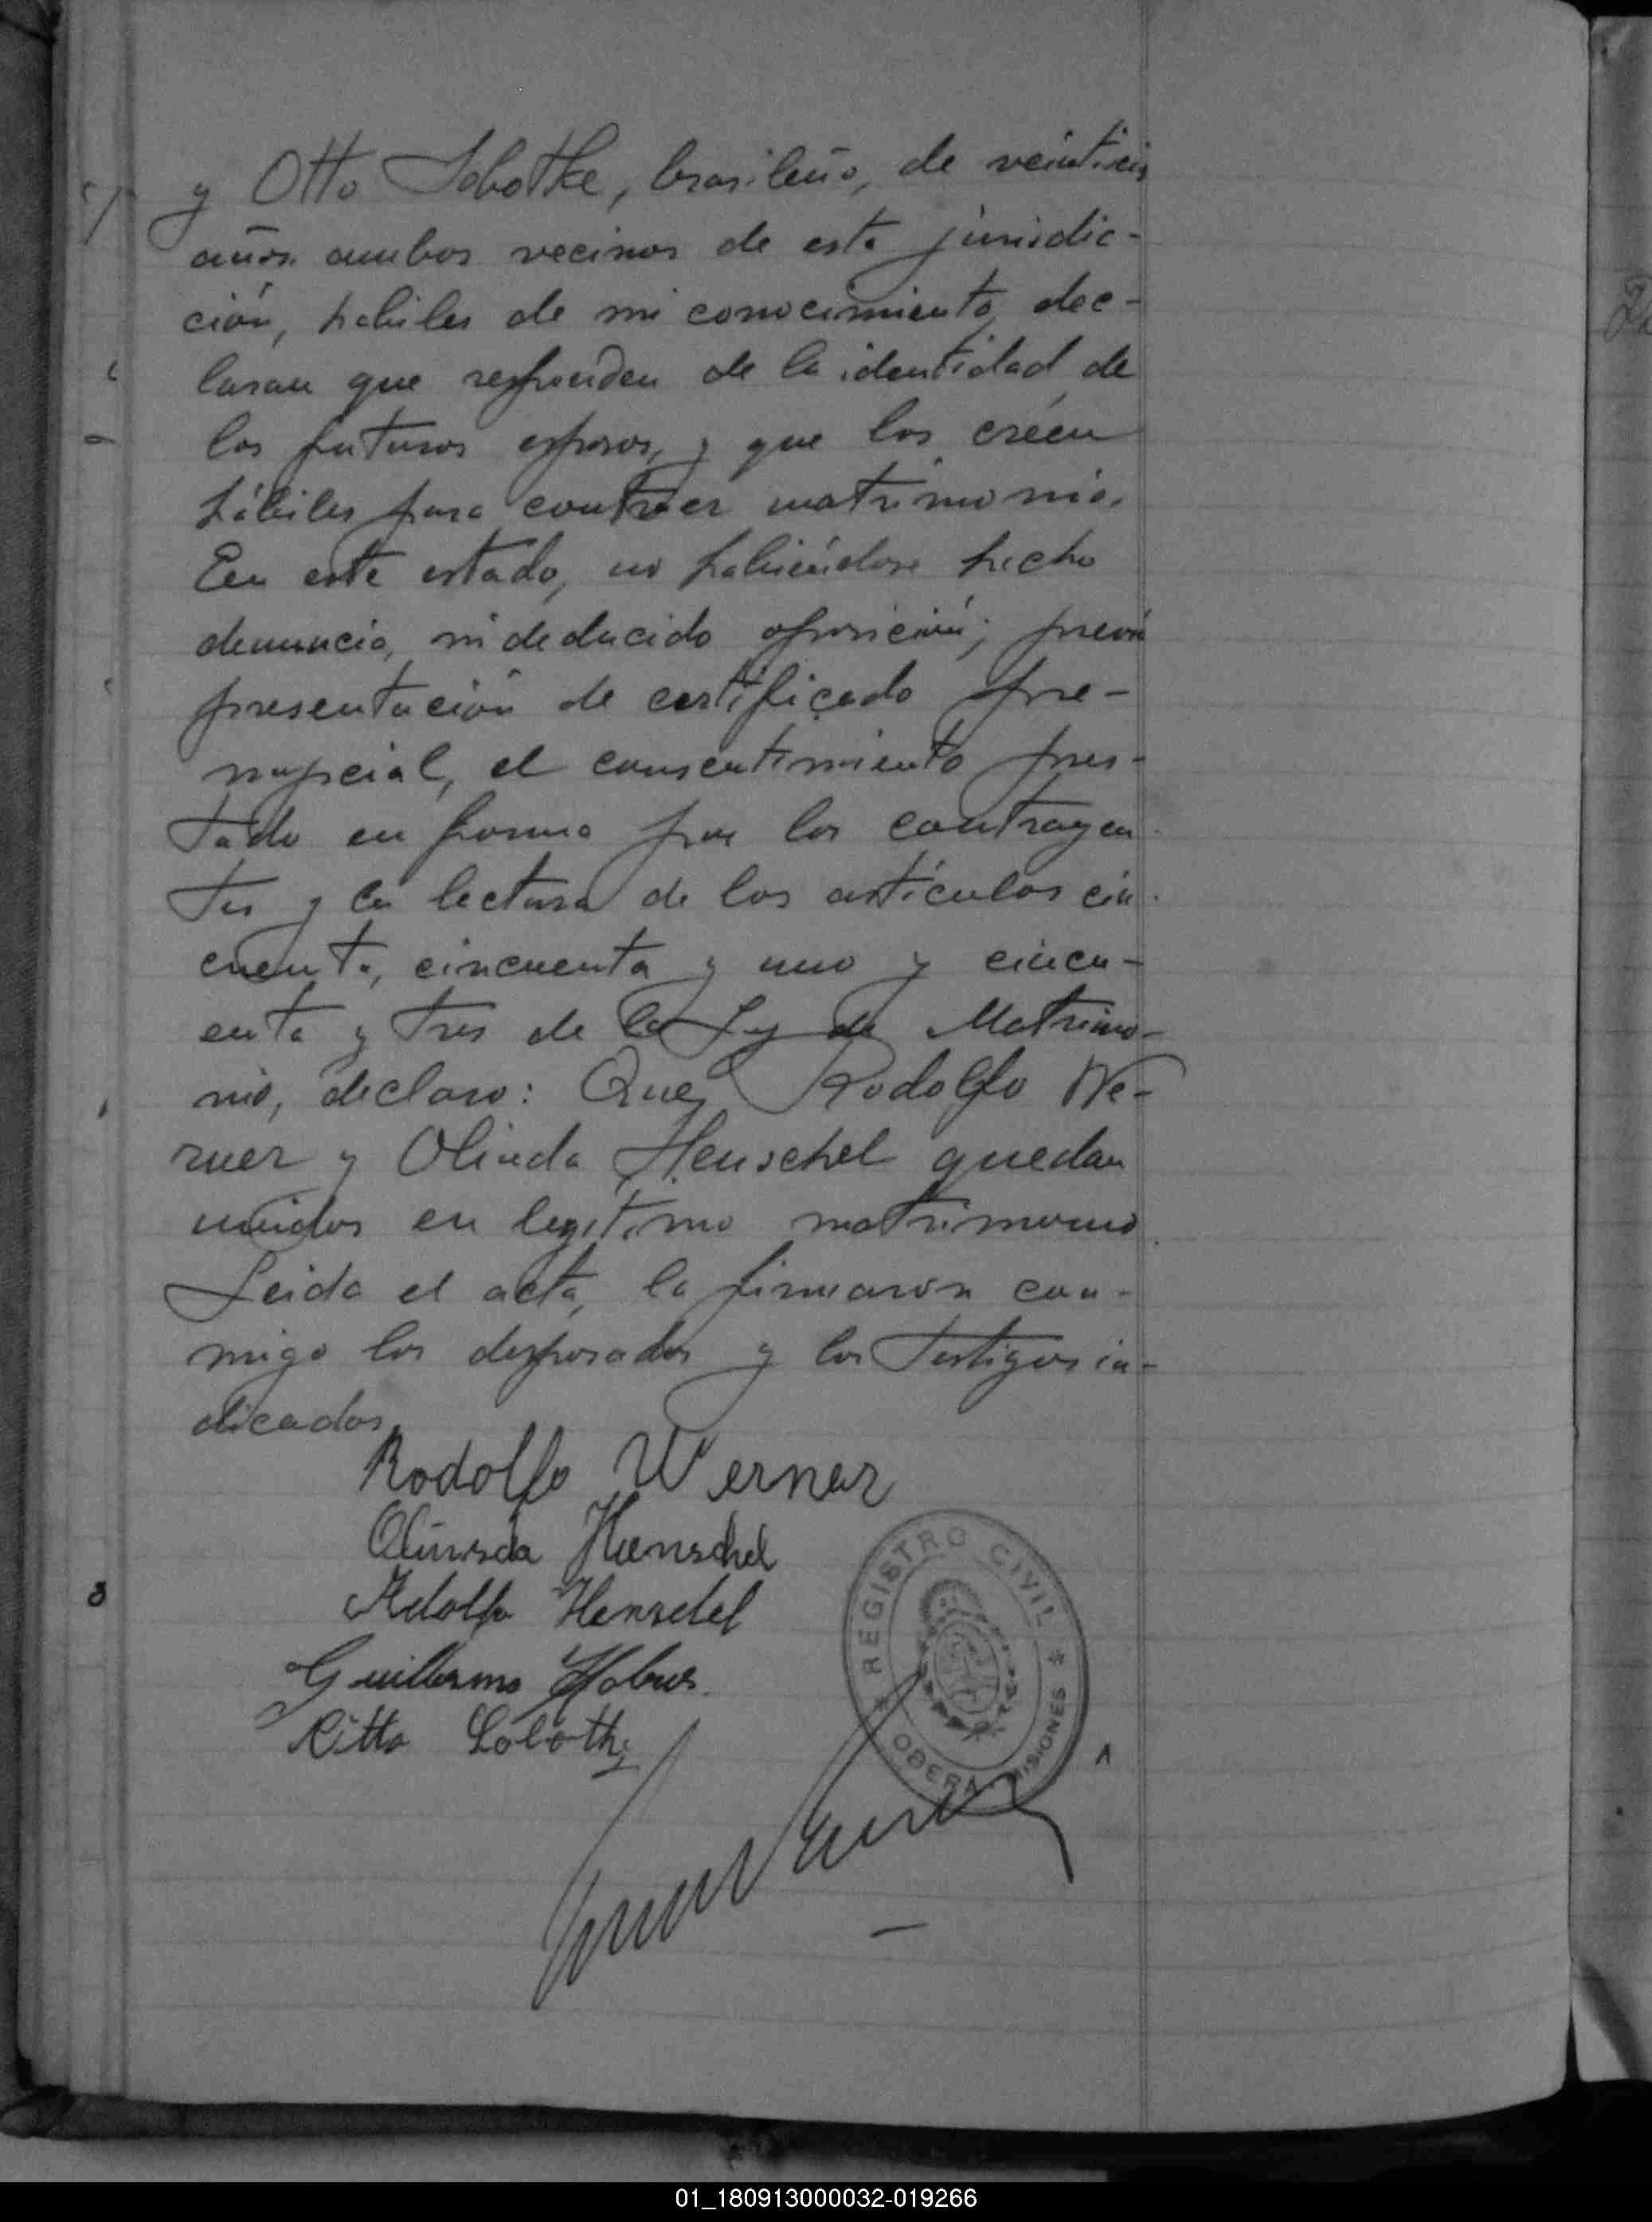 y Otto Sobotke, brasileño, de veintiseis
años. ambos vecinos de esta jurisdic-
ción, habiles de mi conocimiento, dec-
laran que responden de la identidad de
los futuros esposos, y que los créen
hábiles para contraer matrimonio.
En este estado, no habiéndose hecho
denuncia, ni deducido oposición; previa
presentación de certificado pre-
nupcial, el consentimiento pres-
tado en forma por los contrayen
tes y la lectura de los artículos cin
cuenta, cincuenta y uno y cincu-
enta y tres de la Ley de Matrimo-
nio, declaro: Que Rodolfo We-
rner y Olinda Henschel quedan
unidos en legítimo matrimonio.
Leida el acta, la firmaron con-
migo los desposados y los testigos in-
dicados.
Rodolfo Werner
Olinda Henschel
Adolfo Henschel
Guillermo
Otto
REGISTRO CIVIL
OBERA - MISIONES
01_180913000032-019266